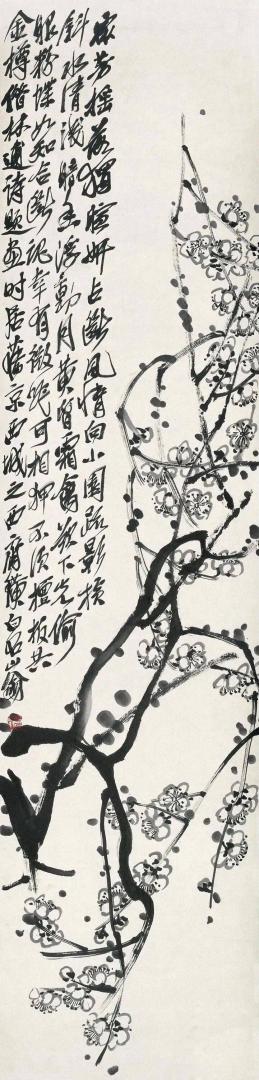 衆芳摇落獨暄妍占斷風情向小園疏影橫
斜水清淺暗香浮動月黄昏霜禽欲下先偷
眼粉蝶如知合斷魂幸有微吟可相狎不須檀板共
金樽借林逋詩題畫時居舊京西城之西齊璜白石山翁